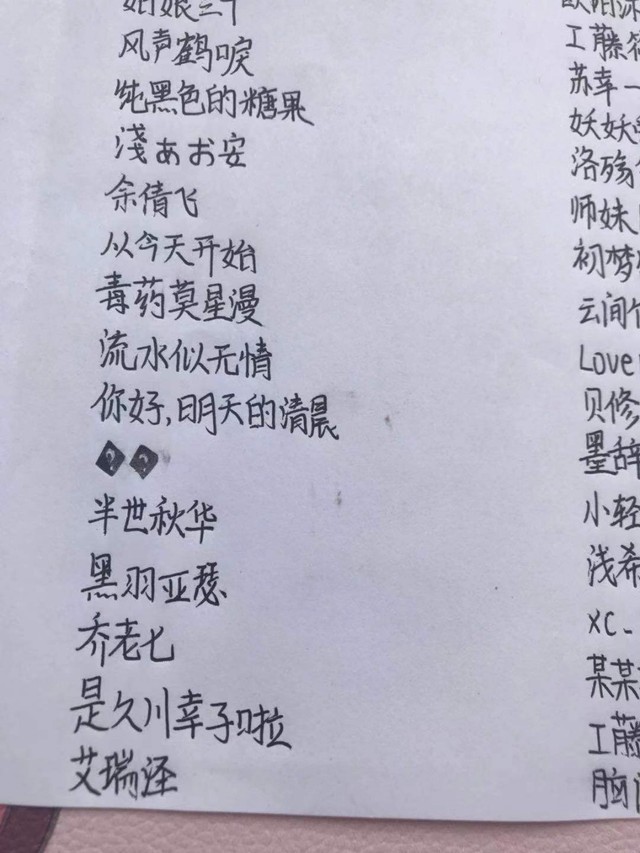 风声鹤唳
纯黑色的糖果
淺あお安
余倩飞
从今天开始
毒药莫星漫
流水似无情
你好,明天的清晨
��
半世秋华
黑羽亚瑟
乔老七
是久川幸子啦
艾瑞泽
工藤
苏幸一
妖妖
洛殇
师妹
初梦
云间
Love
贝修
墨辞
小轻
浅希
xc-
某某
工藤
脑